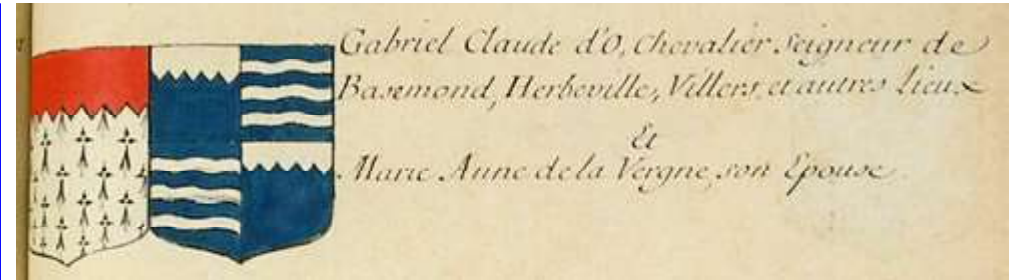 Gabriel Claude d'O, Chevalier Seigneur de
Basemond, Herbeville, Villers, et autres lieux
Et
Marie Anne de la Vergne, son Epouse